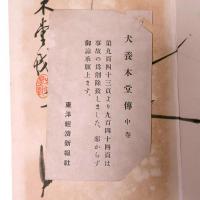 犬養木堂傳 中卷
第九百四十三頁より九百四十四頁は
事故の爲削除致しました。惡からず
御諒承願上ます。
東洋經濟新報社
木堂